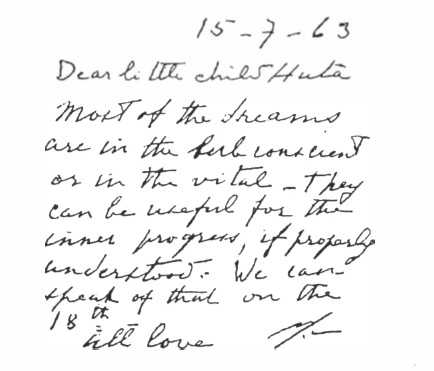 15-7-63
Dear little child Huta
Most of the dreams
are in the subconscient
or in the vital - They
can be useful for the
inner progress, if properly
understood. - We can
speak of that on the
18th
all love